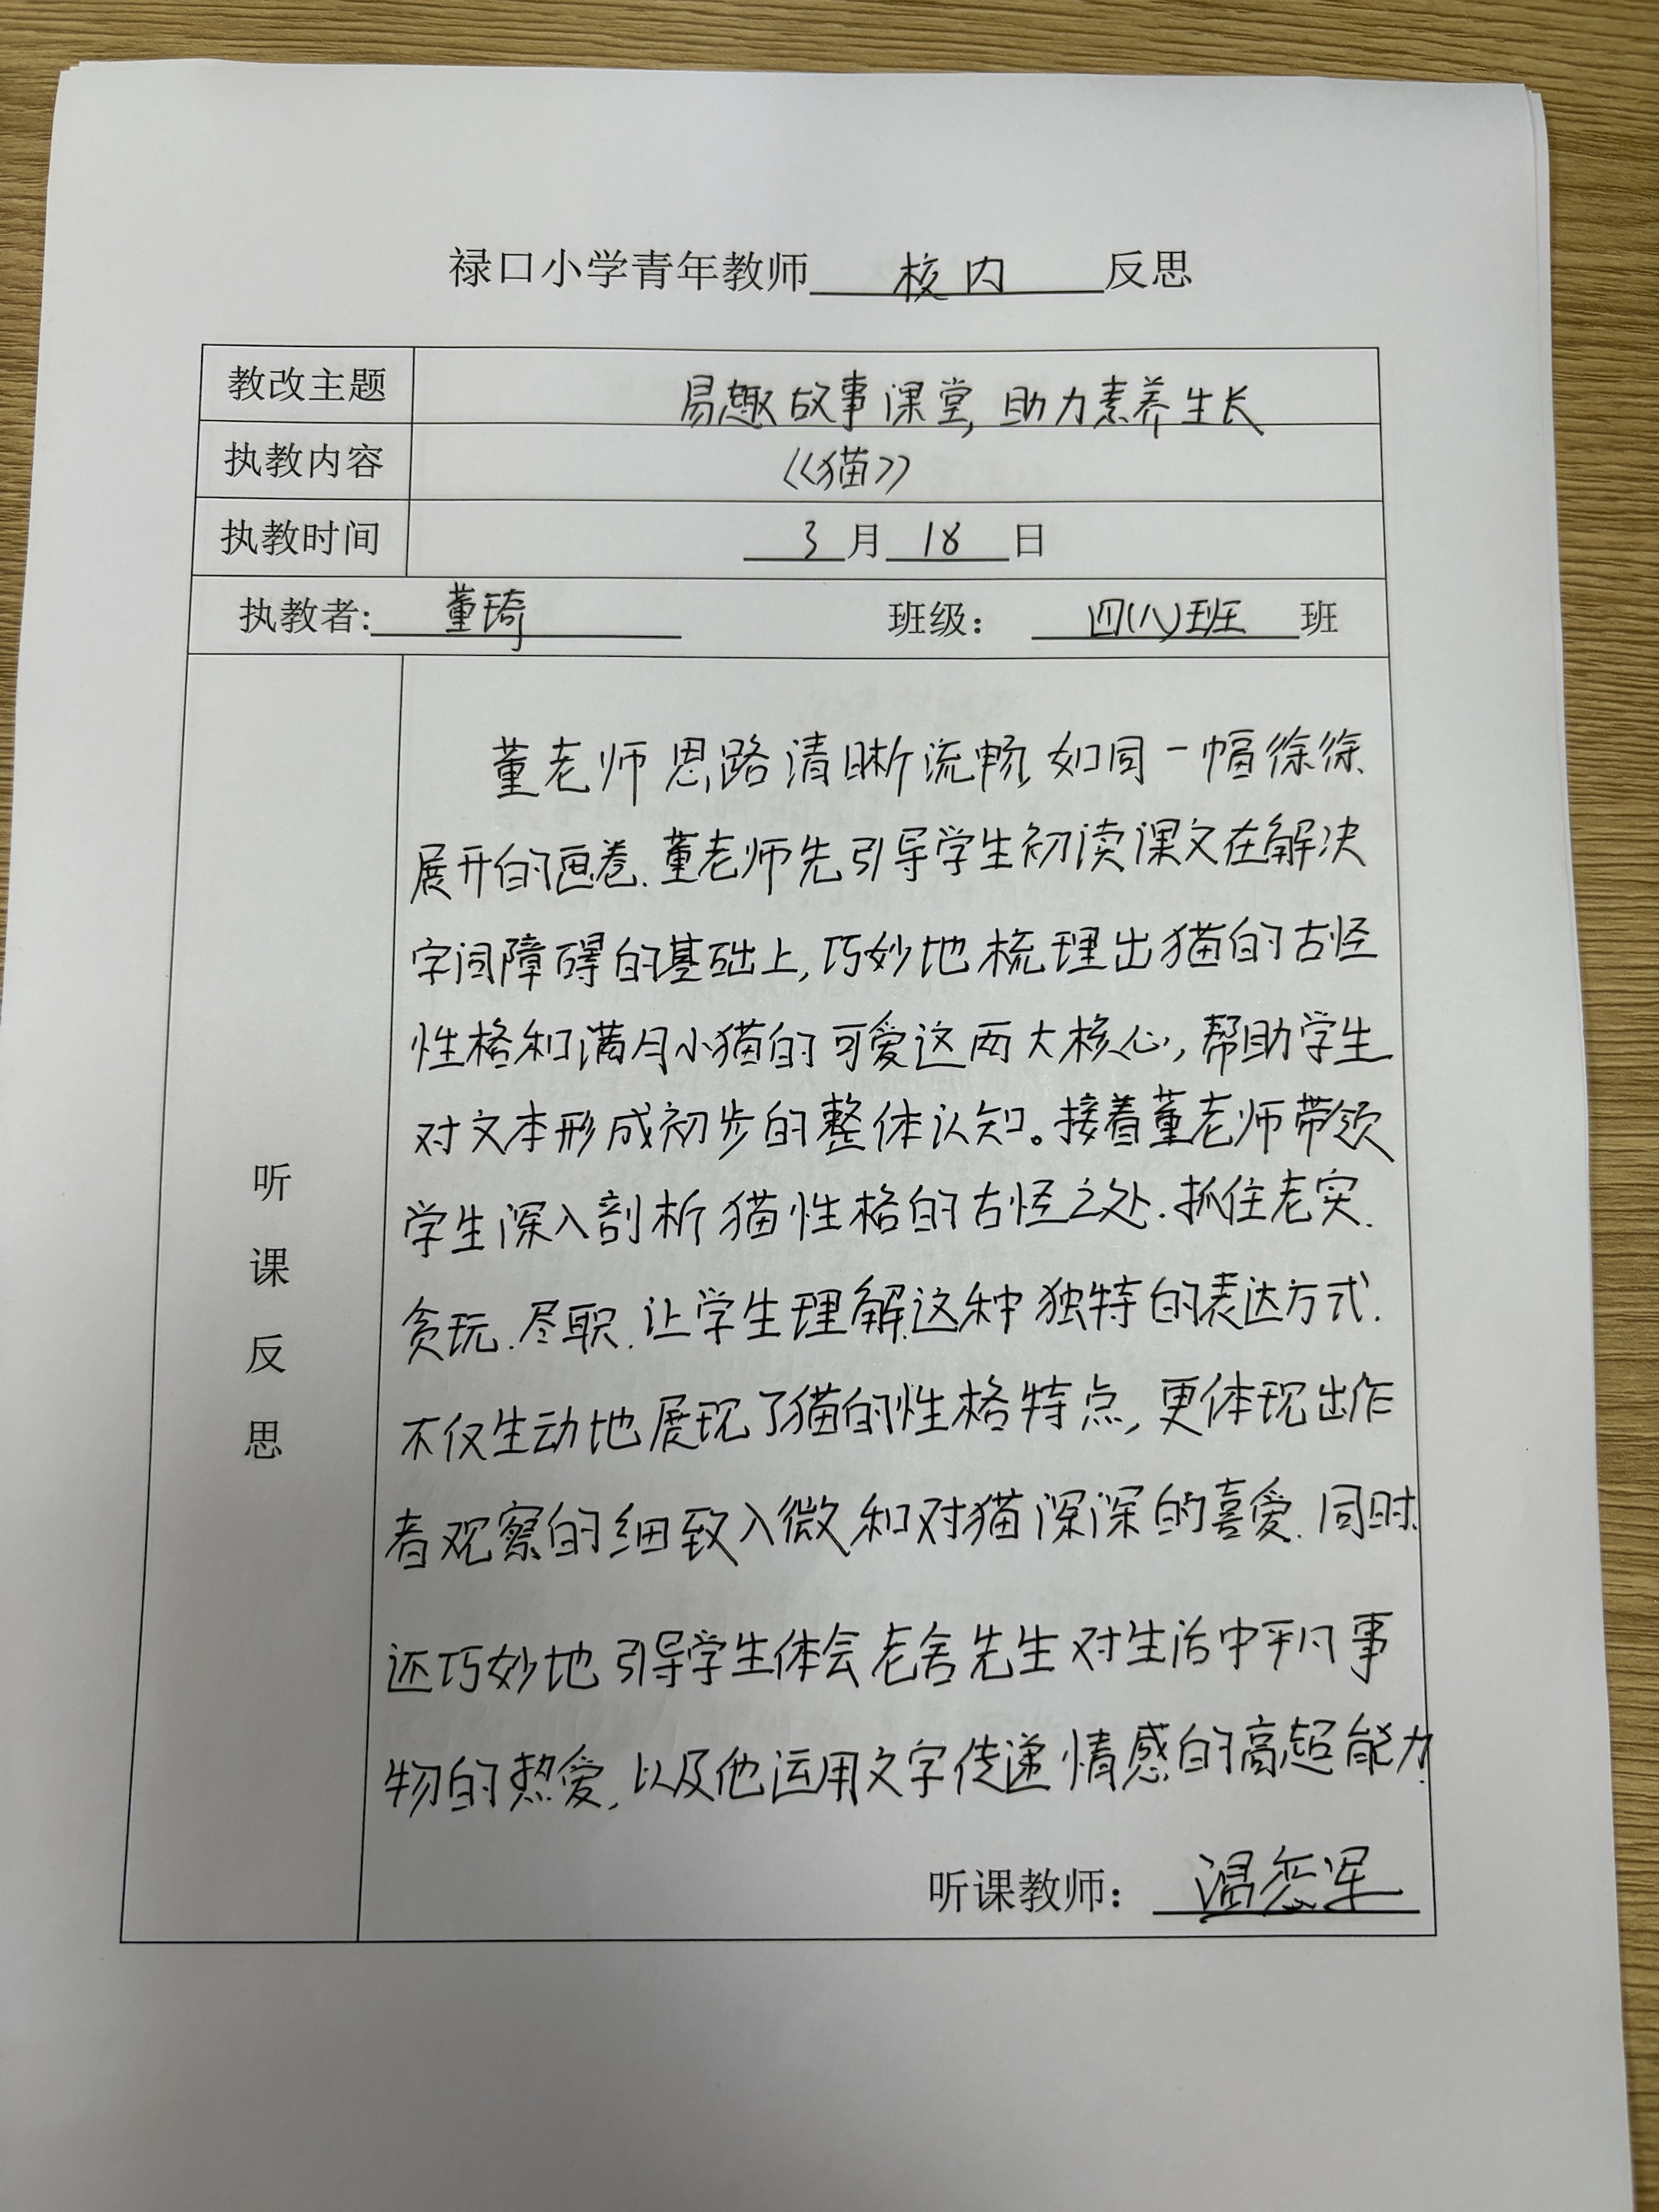 禄口小学青年教师 校内 反思
教改主题 易趣故事课堂,助力素养生长
执教内容 《猫》
执教时间 3月18日
执教者: 董琦 班级: 四(八)班 班
听课反思
董老师思路清晰流畅,如同一幅徐徐
展开的画卷.董老师先引导学生初读课文在解决
字词障碍的基础上,巧妙地梳理出猫的古怪
性格和满月小猫的可爱这两大核心,帮助学生
对文本形成初步的整体认知。接着董老师带领
学生深入剖析猫性格的古怪之处.抓住老实.
贪玩.尽职.让学生理解这种独特的表达方式.
不仅生动地展现了猫的性格特点,更体现出作
者观察的细致入微和对猫深深的喜爱.同时.
还巧妙地引导学生体会老舍先生对生活中平凡事
物的热爱,以及他运用文字传递情感的高超能力.
听课教师: 温